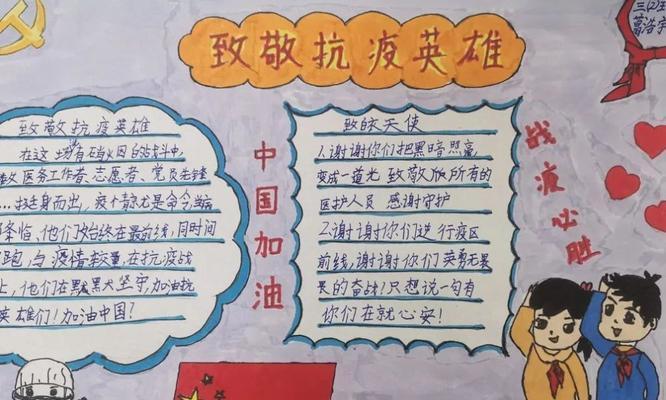 致敬抗疫英雄
三(2)班
葛浩宇
致敬抗疫英雄
在这场有硝火因的战斗中,
医务工作者、志愿者、党员先锋
...挺身而出,疫情就是命令,当
降临,他们始终在最前线,同时间
跑,与疫情较量,在抗疫战
上,他们在默默坚守,加油抗
英雄们!加油中国?
中国加油
致白衣天使
1.谢谢你们把黑暗照亮,
变成一道光 致敬所有的
医护人员 感谢守护
2.谢谢你们逆行疫区
前线,谢谢你们 英勇无果
畏的奋战!只想说一句有
你们在就心安!
战疫必胜